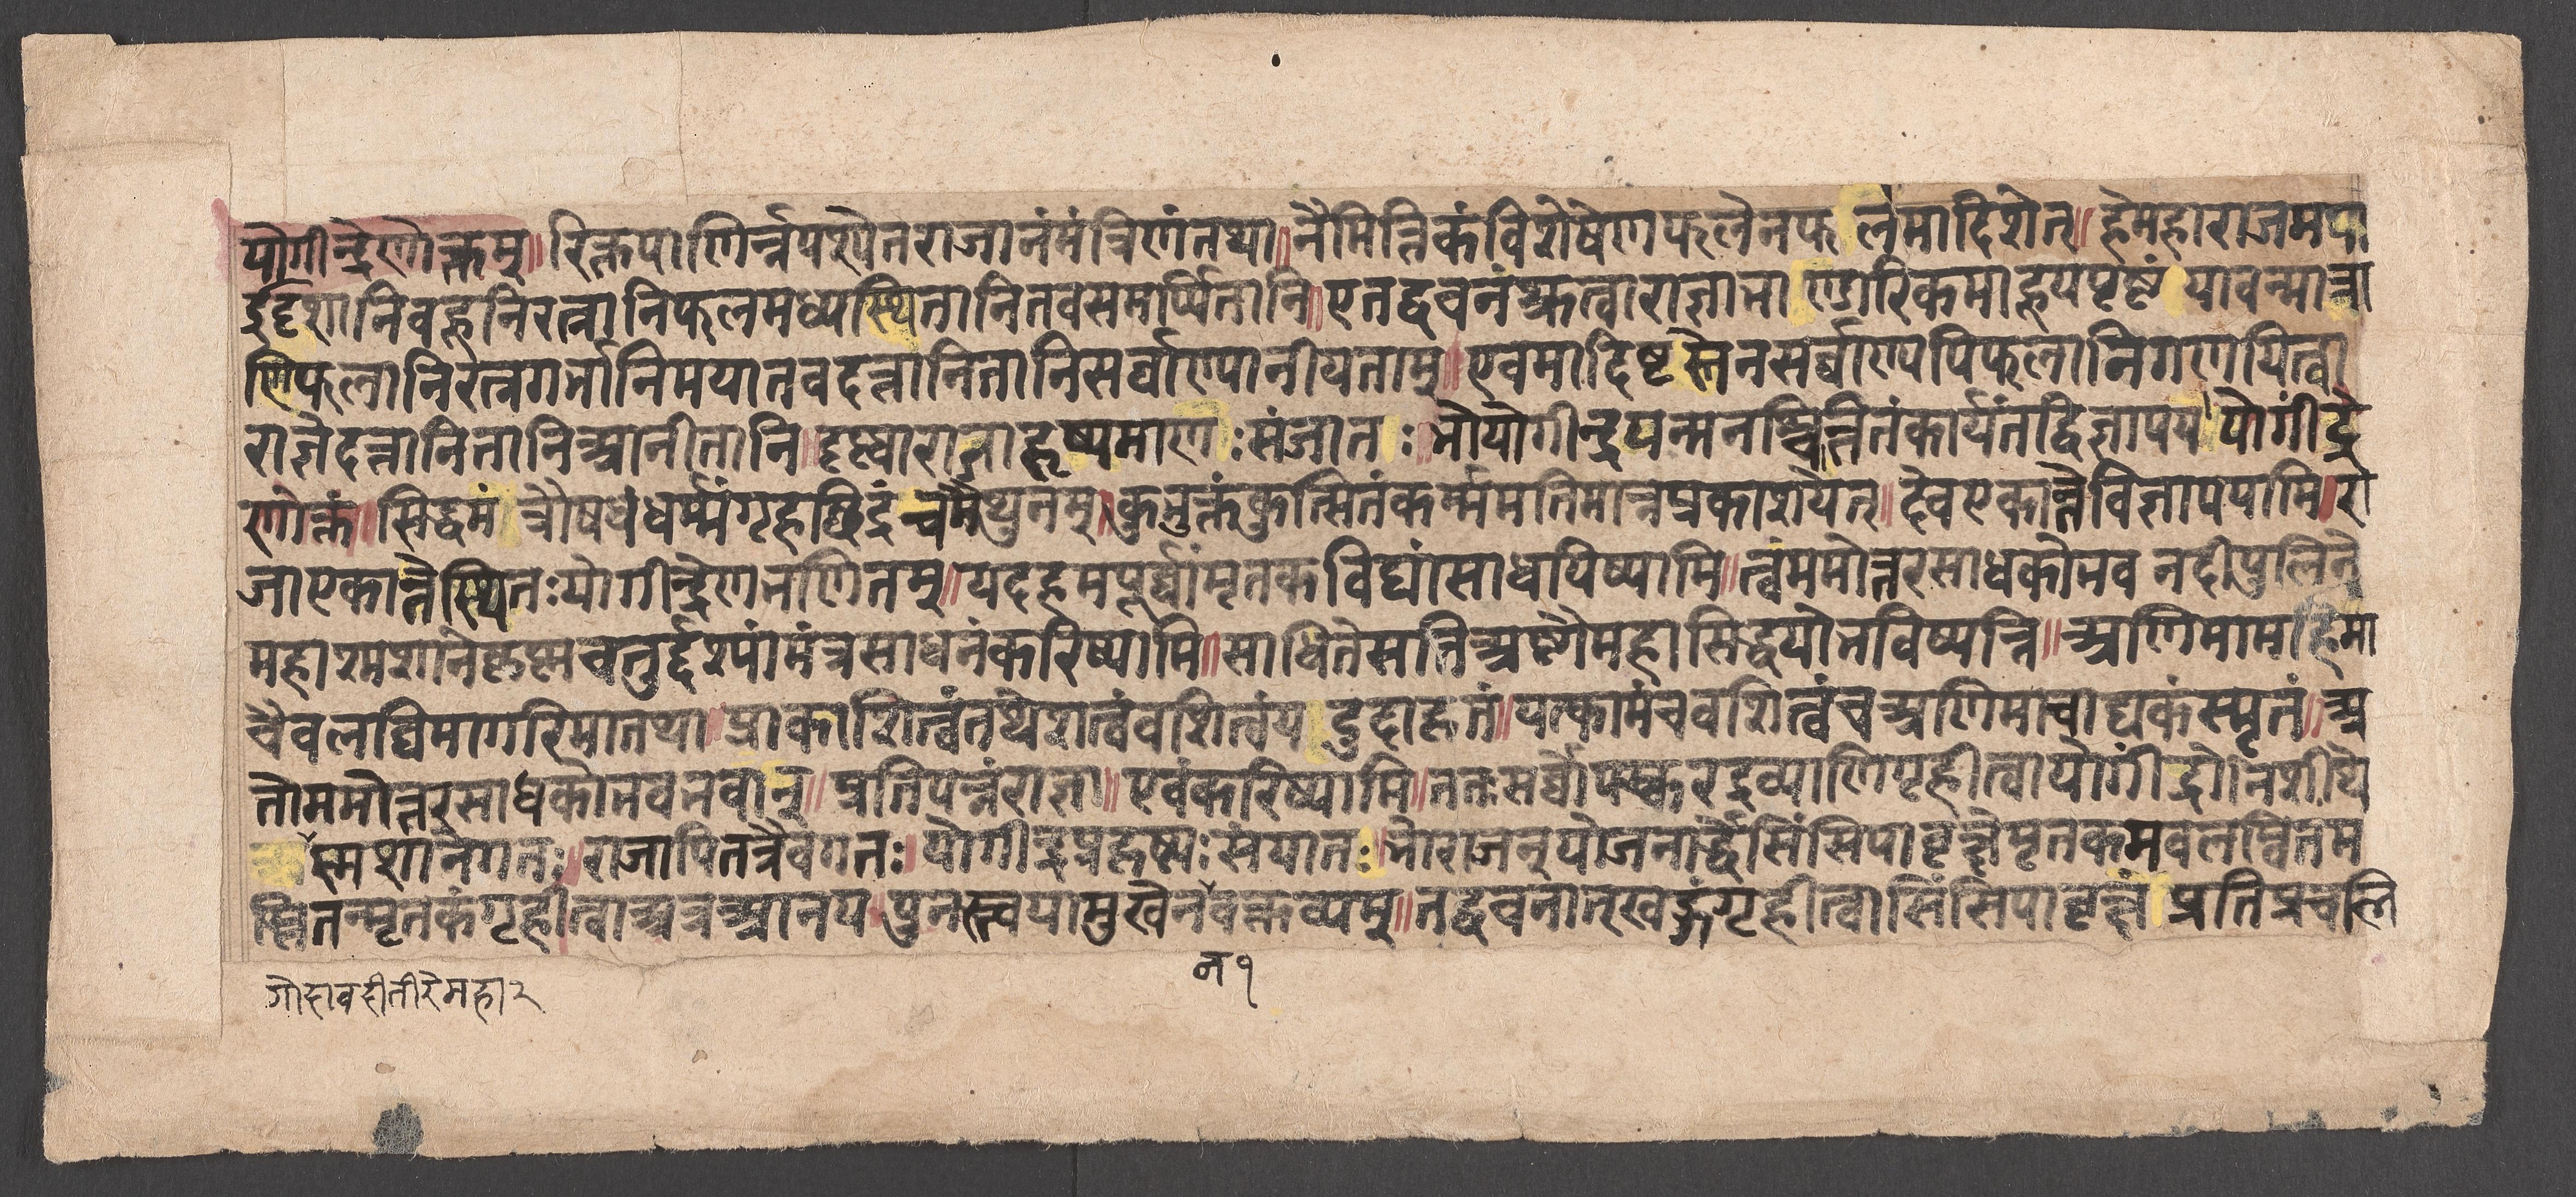 योगीन्द्रेणोक्तम्॥रिक्तपाणिर्न्नपश्येतराजानंमंत्रिणंतथा॥नैमित्तिकंविशेषेणफलेनफलमादिशेत्॥हेमहाराजमया
ईदृशानिवहूनिरत्नानिफलमध्यस्थितानितवसमार्प्पितानि॥एतद्वचनंश्रुत्वाराज्ञाभाण्डारिकमाहूयपृष्टं यावन्मात्रा
णिफलानिरत्नगर्भानिमयातवदत्तानितानिसर्वाण्यानीयताम्॥एवमादिष्टस्तेनसर्व्वाण्यपिफलानिगणयित्वा
राज्ञेदत्तानितानिआनीतानि॥दृष्ट्वाराजाहृष्यमाणःसंजातः॥भोयोगीन्द्रयन्मनश्चिन्तितंकार्यंतद्विज्ञापय॥योगींद्रे
णोक्तं॥सिद्धमंत्रौषधंधर्म्मंगृहछिद्रंचमैथुनम्॥कुभुक्तंकुत्सितंकर्म्ममतिमान्नप्रकाशयेत्॥देवएकान्तेविज्ञापयामि॥रा
जाएकान्तेस्थितःयोगीन्द्रेणभणितम्॥यदहमपूर्व्वांमृतकविद्यांसाधयिष्यामि॥त्वंममोत्तरसाधकोभव नदीपुलिने
महाश्मशानेकृष्णचतुर्द्दश्यांमंत्रसाधनंकरिष्यामि॥साधितेसतिअष्टौमहासिद्धयोभविष्यन्ति॥अणिमामहिमा
चैवलघिमागरिमातथा॥प्राकाशित्वंतथेशत्वंवशित्वंयदुदाहृतं॥यत्कामंचवशित्वंचअणिमाचाष्टकंस्मृतं॥अ
तोममोत्तरसाधकोभवभवान्॥प्रतिपन्नंराज्ञा॥एवंकारिष्यामि॥ततःसर्व्वोपस्करद्रव्याणिगृहीत्वायोगींद्रोनिशीथे
स्मशानेगतः॥राजापितत्रैवगतः॥योगीद्रप्रहृष्यःसंयातः॥भोराजन्योजनार्द्धेसिंसिपावृक्षेमृतकमवलम्बितम
स्तितन्मृतकंगृहीत्वाअत्रआनय॥पुनस्त्वयामुखेनवक्तव्यम्॥तद्वचनात्खड्गंगृहीत्वासिंसिपावृक्षं प्रतिप्रचलि
गोदावरीतीरेमहा२
न१